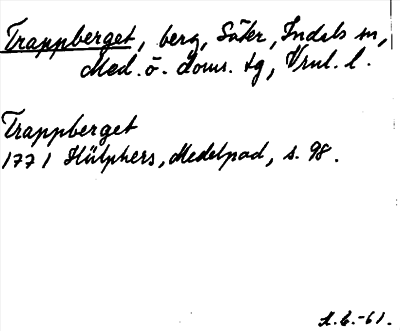 Trappberget, berg, Säter, Indals sn,
Med. ö. doms. tg, Vrnl. l.
Trappberget
1771 Hülphers, Medelpad, s. 98.
-61.